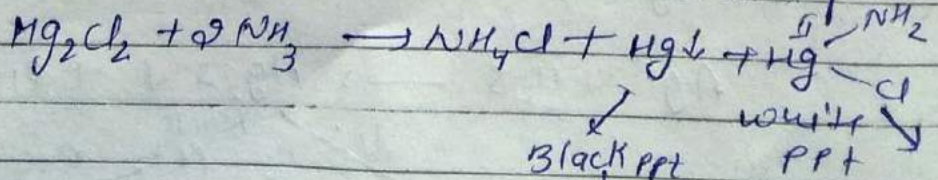 Hg₂Cl₂ + 2NH₃ → NH₄Cl + Hg↓ + Hg NH₂
II
Cl
Black ppt
white
ppt